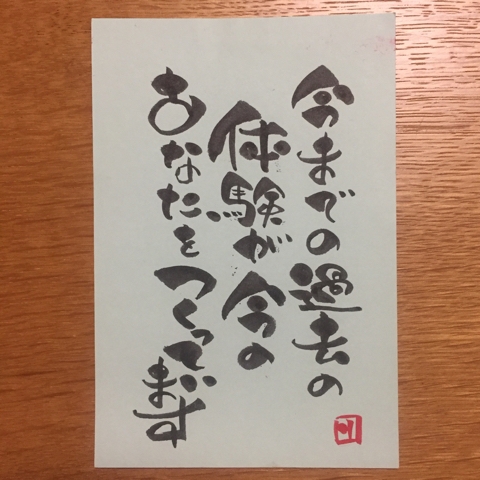 今までの過去の
体験が今の
あなたを
つくってい
ます